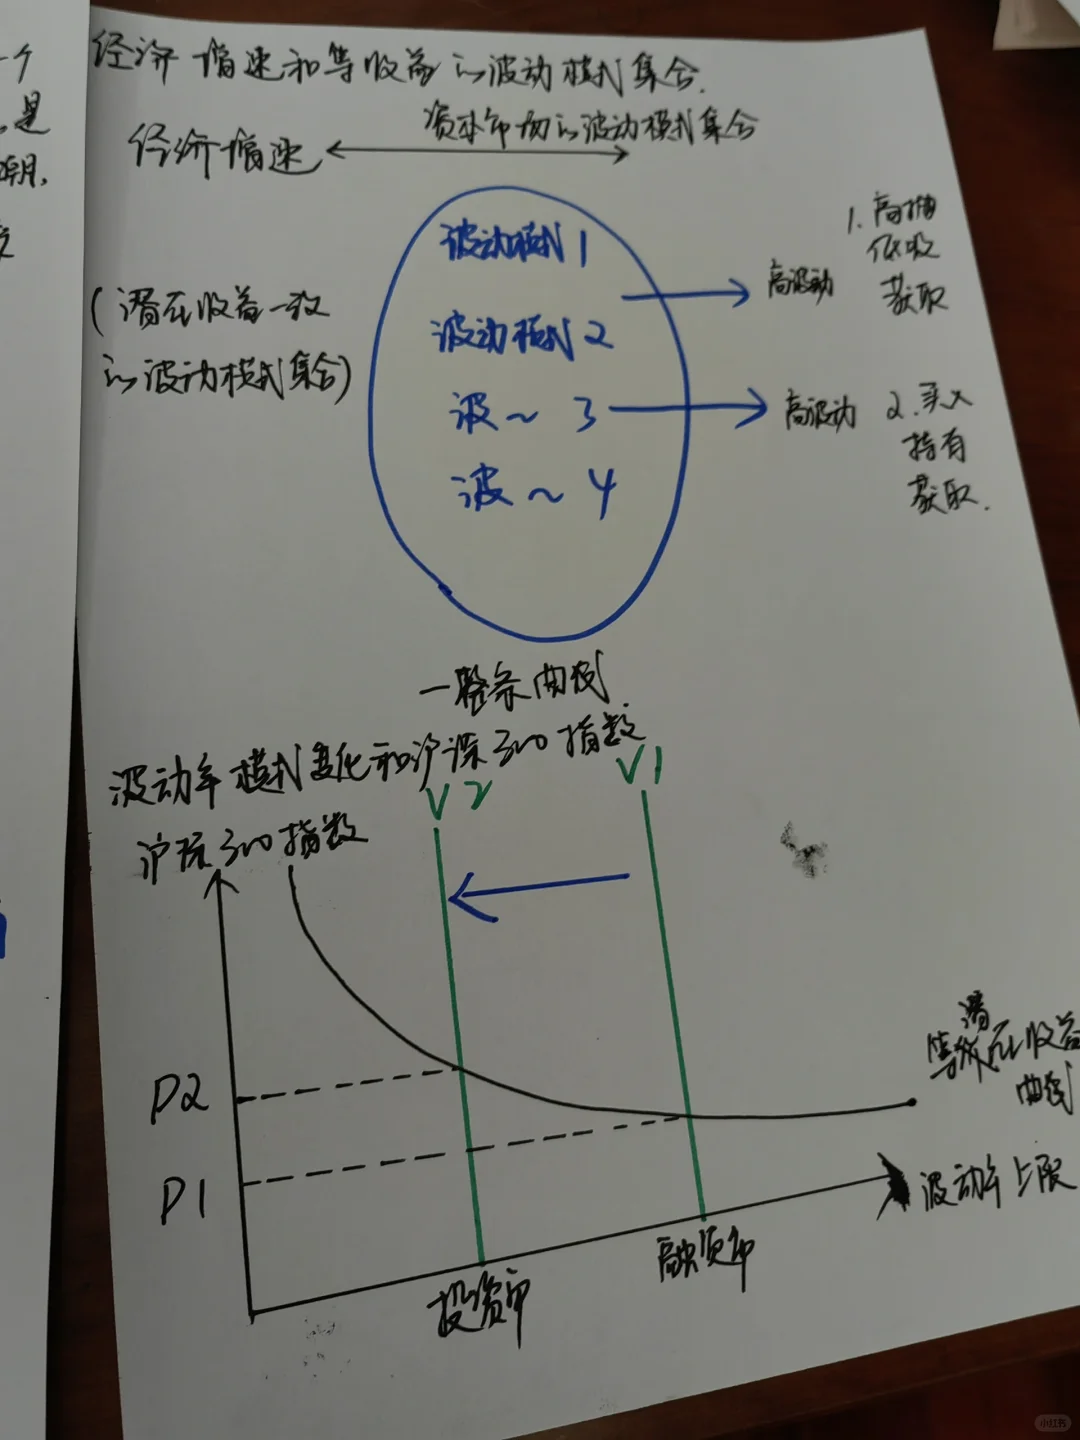 一个
是
潮,
经济增速和等收益的波动模式集合.
资本市场的波动模式集合
经济增速
(潜在收益一致
的波动模式集合)
波动模式1
波动模式2
波~ 3
波~ 4
高波动
1.高抛
低吸
获取
高波动
2.买入
持有
获取.
一整条曲线
波动率模式变化和沪深300指数
沪深300指数
V2
V1
P2
P1
等潜在收益
曲线
波动率上限
投资市
融资市
小红书